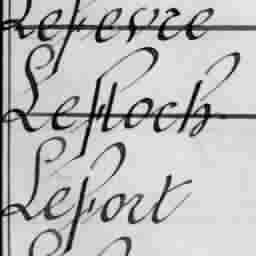 Lefevre
Lefloch
Lefort